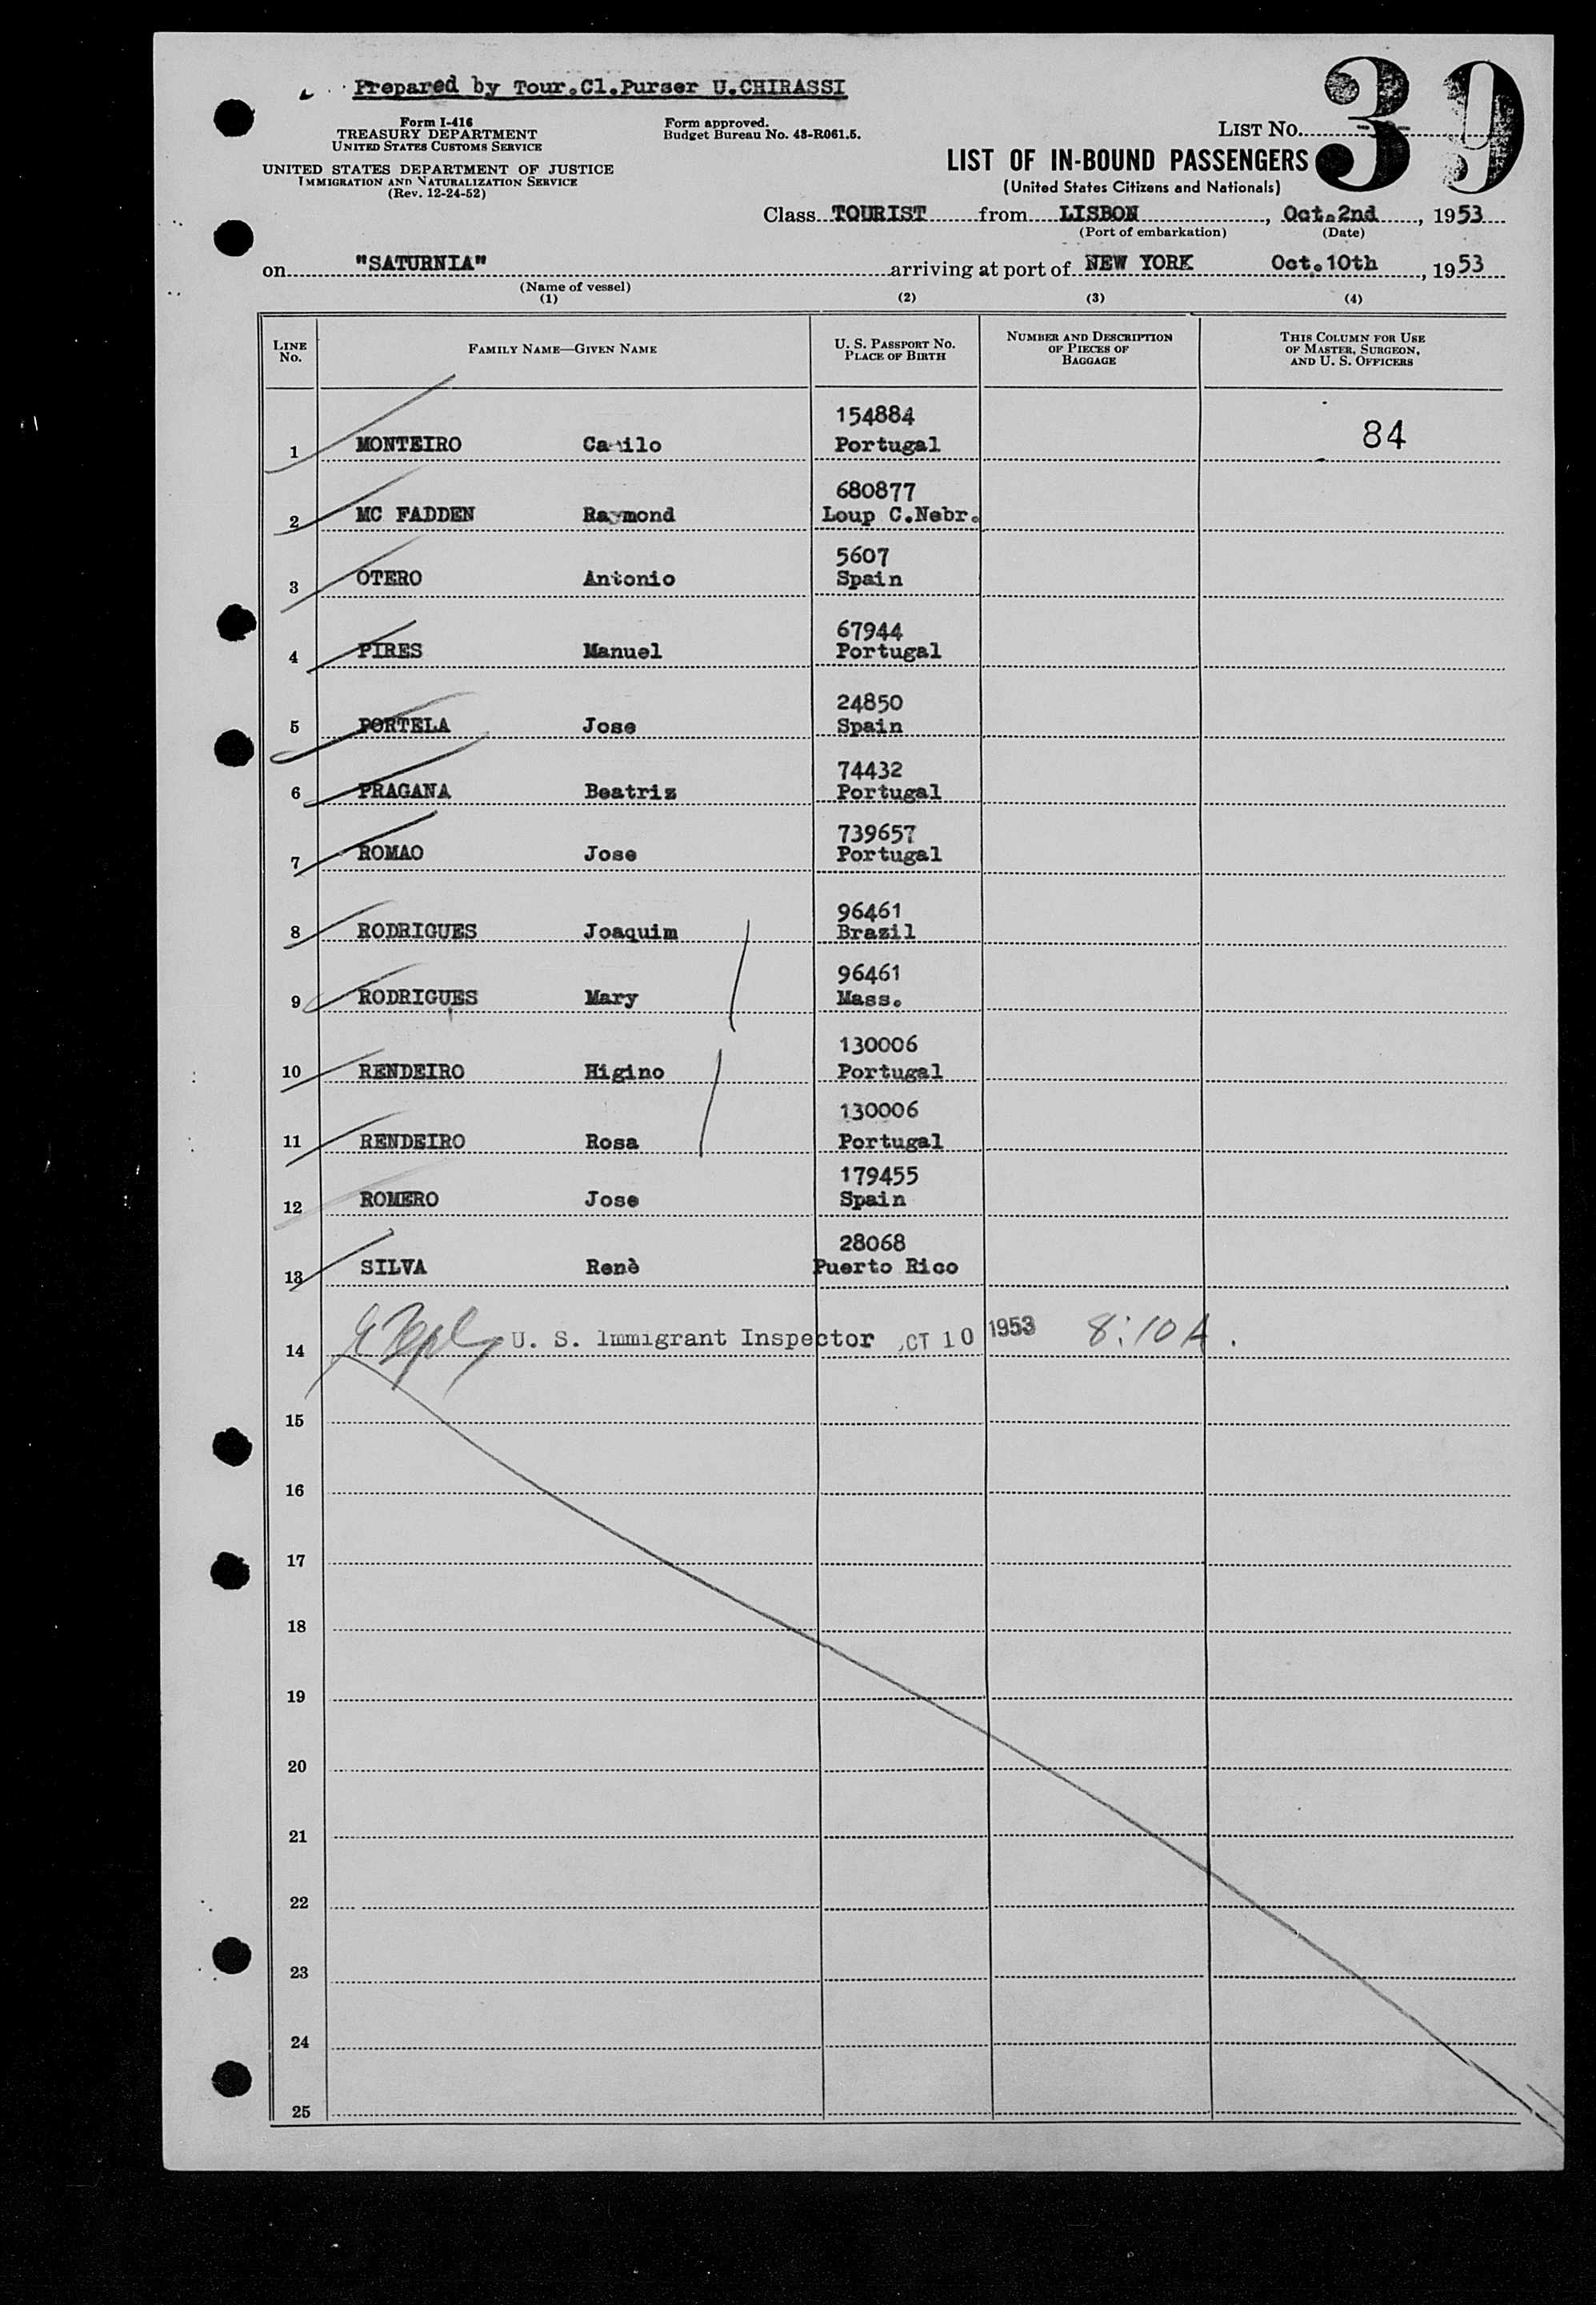 Prepared by Tour.Cl.Purser U.CHIRASSI
Form I-416
TREASURY DEPARTMENT
UNITED STATES CUSTOMS SERVICE
UNITED STATES DEPARTMENT OF JUSTICE
IMMIGRATION AND NATURALIZATION SERVICE
(Rev. 12-24-52)
Form approved.
Budget Bureau No. 43-R061.5.
LIST NO. 39
LIST OF IN-BOUND PASSENGERS
(United States Citizens and Nationals)
Class TOURIST from LISBON, Oct.2nd, 1953
(Port of embarkation) (Date)
on "SATURNIA" arriving at port of NEW YORK Oct.10th, 1953
(Name of vessel)
(1) (2) (3) (4)
LINE NO. FAMILY NAME—GIVEN NAME U. S. PASSPORT NO. PLACE OF BIRTH NUMBER AND DESCRIPTION OF PIECES OF BAGGAGE THIS COLUMN FOR USE OF MASTER, SURGEON, AND U. S. OFFICERS
154884
1 MONTEIRO Camilo Portugal 84
680877
2 MC FADDEN Raymond Loup C.Nebr.
5607
3 OTERO Antonio Spain
67944
4 PIRES Manuel Portugal
24850
5 PORTELA Jose Spain
74432
6 PRAGANA Beatriz Portugal
739657
7 ROMAO Jose Portugal
96461
8 RODRIGUES Joaquim Brazil
96461
9 RODRIGUES Mary Mass.
130006
10 RENDEIRO Higino Portugal
130006
11 RENDEIRO Rosa Portugal
179455
12 ROMERO Jose Spain
28068
13 SILVA Renè Puerto Rico
14 U. S. Immigrant Inspector CT 10 1953 8:10 A.
15
16
17
18
19
20
21
22
23
24
25